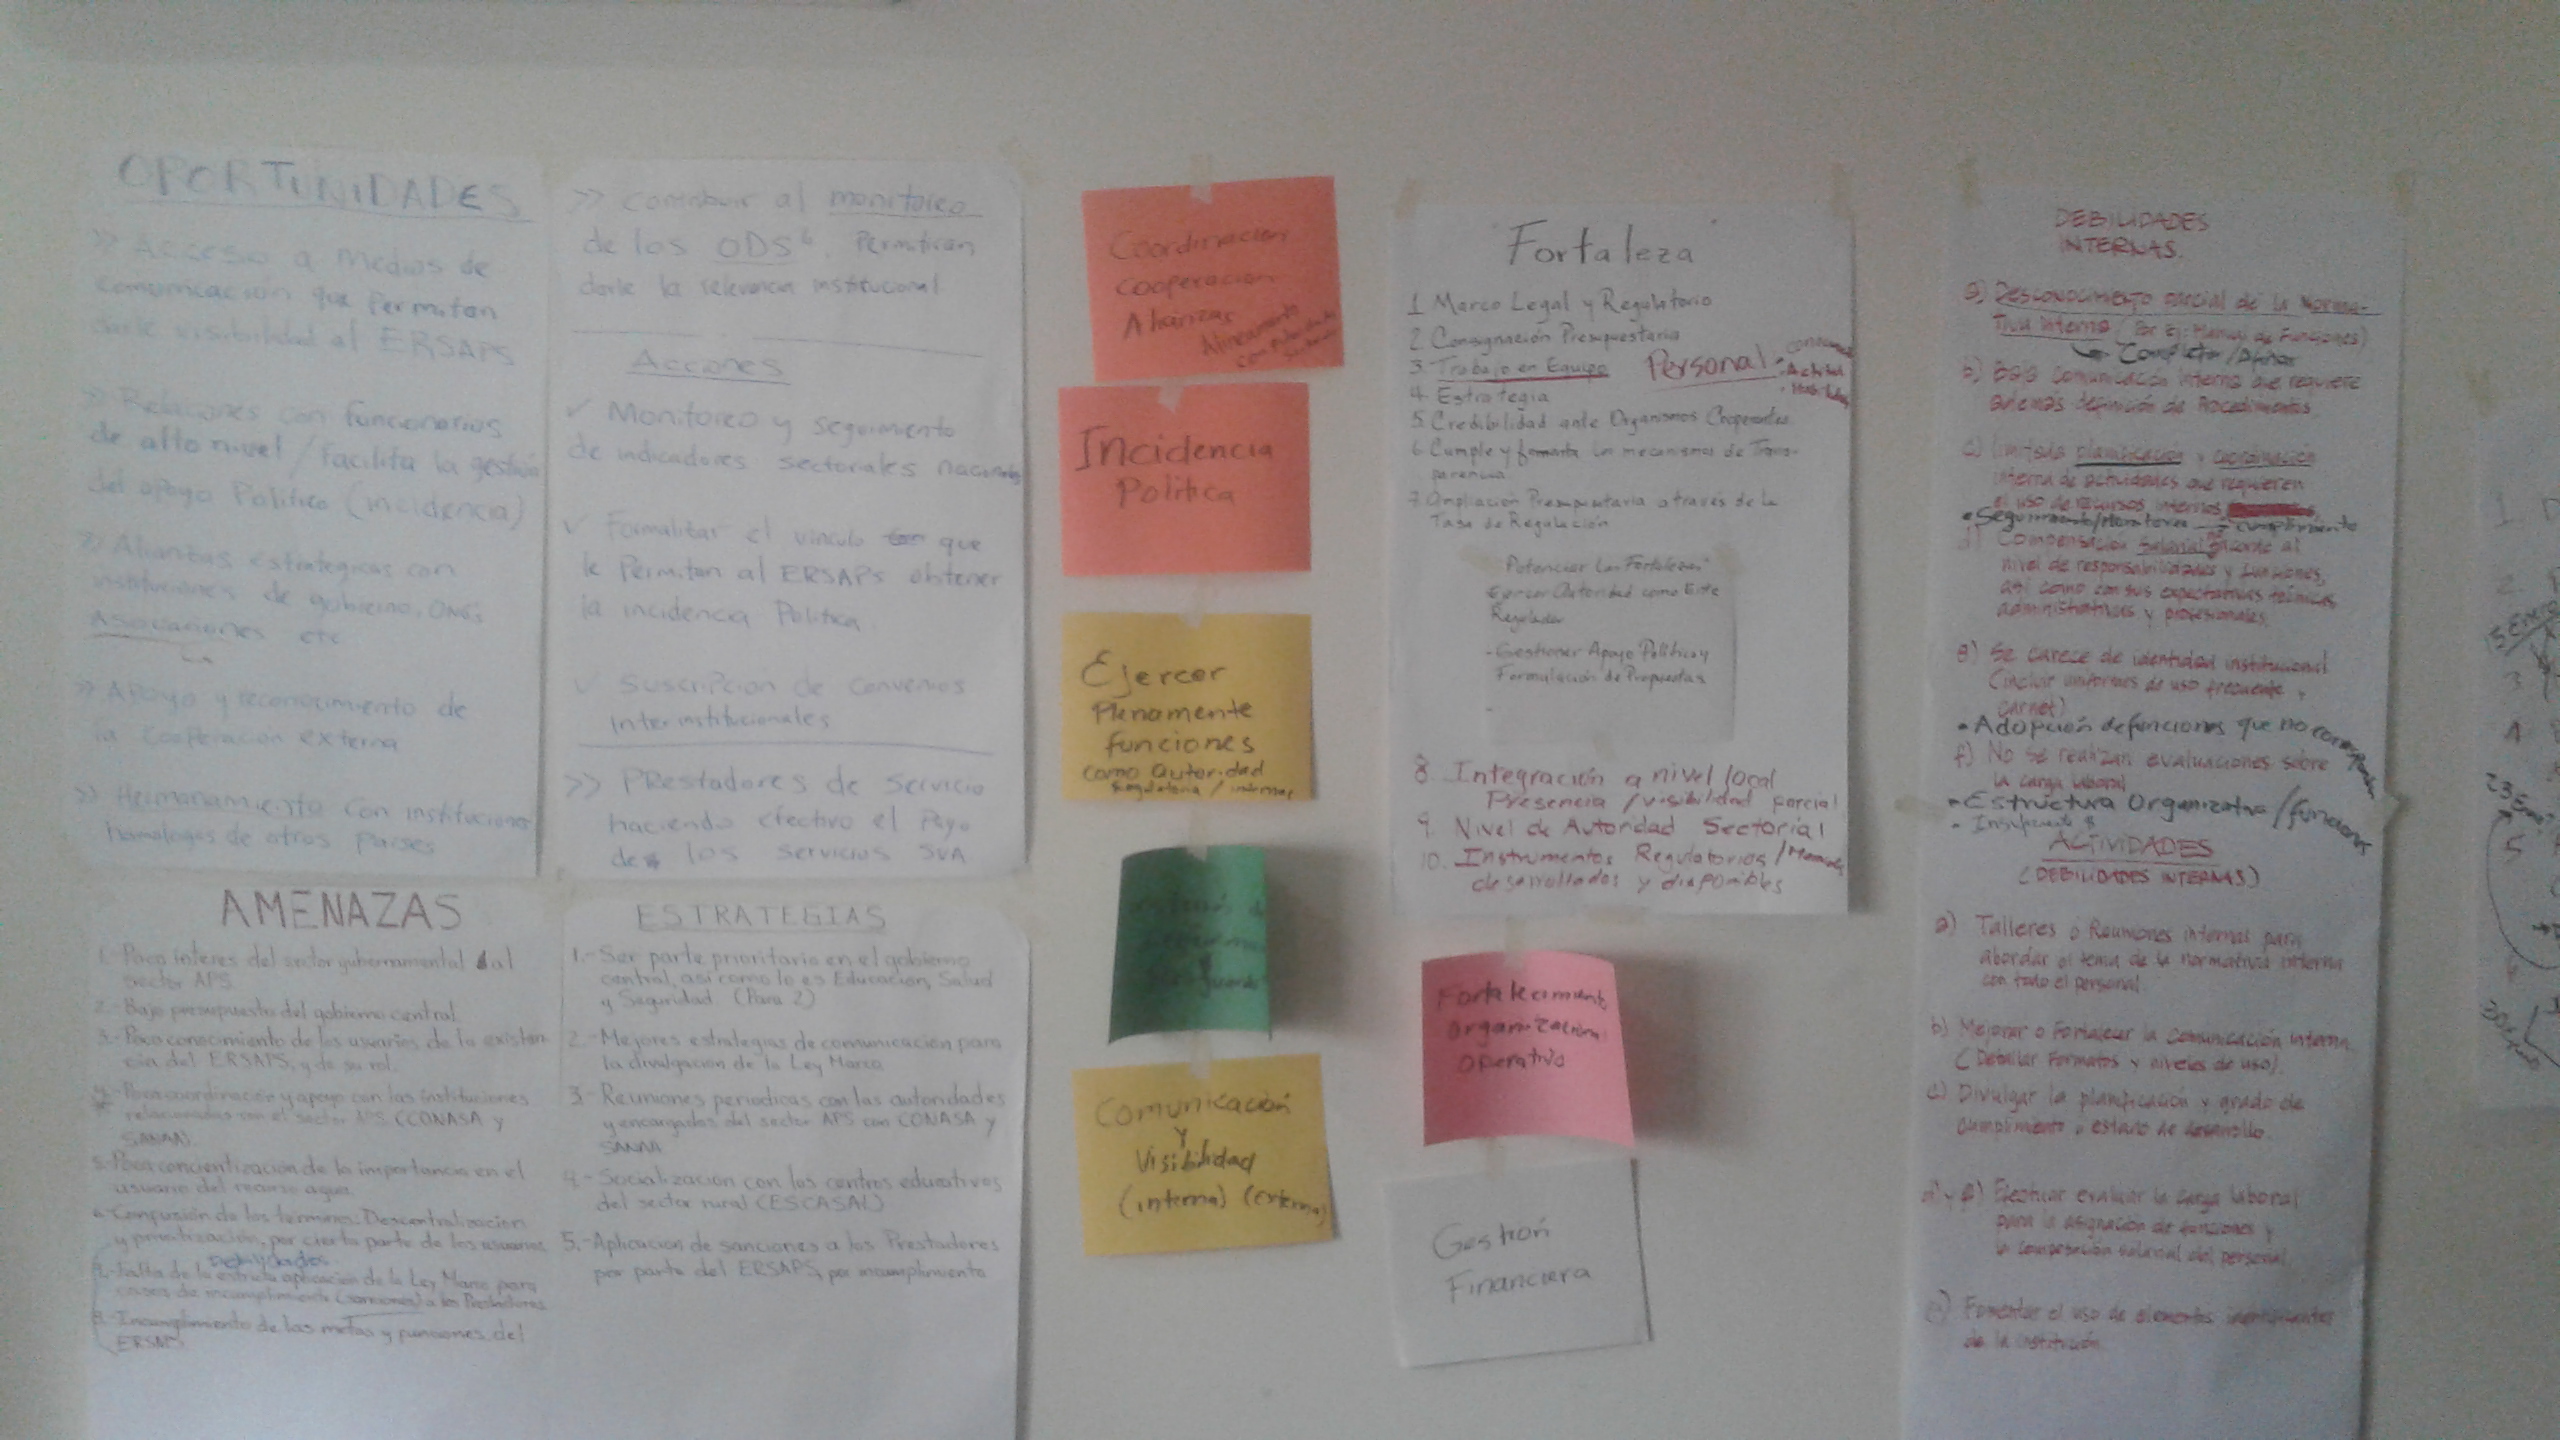 OPORTUNIDADES
>> Acceso a medios de
comunicación que Permitan
darle visibilidad al ERSAPS
>> Relaciones con funcionarios
de alto nivel / facilita la gestión
del apoyo Político (incidencia)
>> Alianzas estrategicas con
instituciones de gobierno, ONG's
Asociaciones etc
>> Apoyo y reconocimiento de
la cooperación externa
>> Hermanamiento con instituciones
homologas de otros países
>> Contribuir al monitoreo
de los ODS6. Permitiran
darle la relevancia institucional
Acciones
✓ Monitoreo y seguimiento
de indicadores sectoriales nacionales
✓ Formalizar el vinculo que
le Permitan al ERSAPS obtener
la incidencia Politica.
✓ Suscripcion de convenios
Interinstitucionales
>> PRestadores de servicio
haciendo efectivo el Pago
de los servicios SVA
AMENAZAS
1.- Poco interes del sector gubernamental al
sector APS
2.- Bajo presupuesto del gobierno central.
3.- Poco conocimiento de los usuarios de la existen-
cia del ERSAPS, y de su rol.
4.- Poca coordinación y apoyo con las instituciones
relacionadas con el sector APS (CONASA y
SANAA).
5.- Poca concientización de la importancia en el
usuario del recurso agua.
6.- Confusión de los terminos: Descentralización
y privatización, por cierta parte de los usuarios
Debilidades
7.- Falta de la estricta aplicación de la Ley Marco para
casos de incumplimiento (sanciones) a los Prestadores
8.- Incumplimiento de las metas y funciones del
ERSAPS
ESTRATEGIAS
1.- Ser parte prioritaria en el gobierno
central, así como lo es Educación, Salud
y Seguridad (Para 2)
2.- Mejores estrategias de comunicación para
la divulgación de la Ley Marco
3.- Reuniones periodicas con las autoridades
y encargados del sector APS con CONASA y
SANAA
4.- Socialización con los centros educativos
del sector rural (ESCASAL)
5.- Aplicación de sanciones a los Prestadores
por parte del ERSAPS, por incumplimiento
Coordinación
Cooperación
Alianzas
Alineamiento
con
Incidencia
Política
Ejercer
Plenamente
funciones
como Autoridad
Regulatoria /
Comunicación
y
Visibilidad
(interna) (externa)
"Fortaleza"
1 Marco Legal y Regulatorio
2 Consignación Presupuestaria
3. Trabajo en Equipo Personal
• Actitud
4. Estrategia
5. Credibilidad ante Organismos Cooperantes
6. Cumple y fomenta los mecanismos de Trans-
parencia
7. Ampliación Presupuestaria a través de la
Tasa de Regulación
"Potenciar las Fortalezas"
Ejercer Autoridad como Ente
Regulador
- Gestionar Apoyo Político y
Formulación de Propuestas
8. Integración a nivel local
Presencia / visibilidad parcial
9. Nivel de Autoridad Sectorial
10. Instrumentos Regulatorios /
desarrollados y disponibles
Fortalecimiento
organizacional
operativo
Gestión
Financiera
DEBILIDADES
INTERNAS.
a) Desconocimiento parcial de la Norma-
tiva interna (Por Ej: Manual de Funciones)
b) Baja comunicación interna que requiere
además definición de Procedimientos
c) limitada planificación y coordinación
interna de actividades que requieren
el uso de recursos internos
• Seguimiento/Monitoreo → cumplimiento
d) Compensación salarial no acorde al
nivel de responsabilidades y funciones,
así como con sus expectativas técnicas,
administrativas y profesionales.
e) Se carece de identidad institucional
(incluir uniformes de uso frecuente y
carnet)
• Adopción de funciones que no corresponden
f) No se realizan evaluaciones sobre
la carga laboral
• Estructura Organizativa / funciones
- Insuficiente $
ACTIVIDADES
(DEBILIDADES INTERNAS)
a) Talleres o Reuniones internas para
abordar el tema de la normativa interna
con todo el personal.
b) Mejorar o Fortalecer la comunicación interna.
(Detallar Formatos y niveles de uso).
c) Divulgar la planificación y grado de
cumplimiento o estado de desarrollo.
d) y f) Efectuar evaluar la carga laboral
para la asignación de funciones y
la compensación salarial del personal
e) Fomentar el uso de elementos
de la institución.